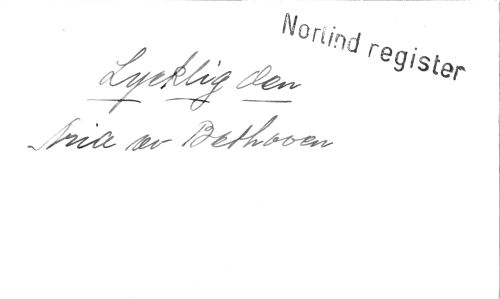 Norlind register
Lycklig den
Aria av Bethoven